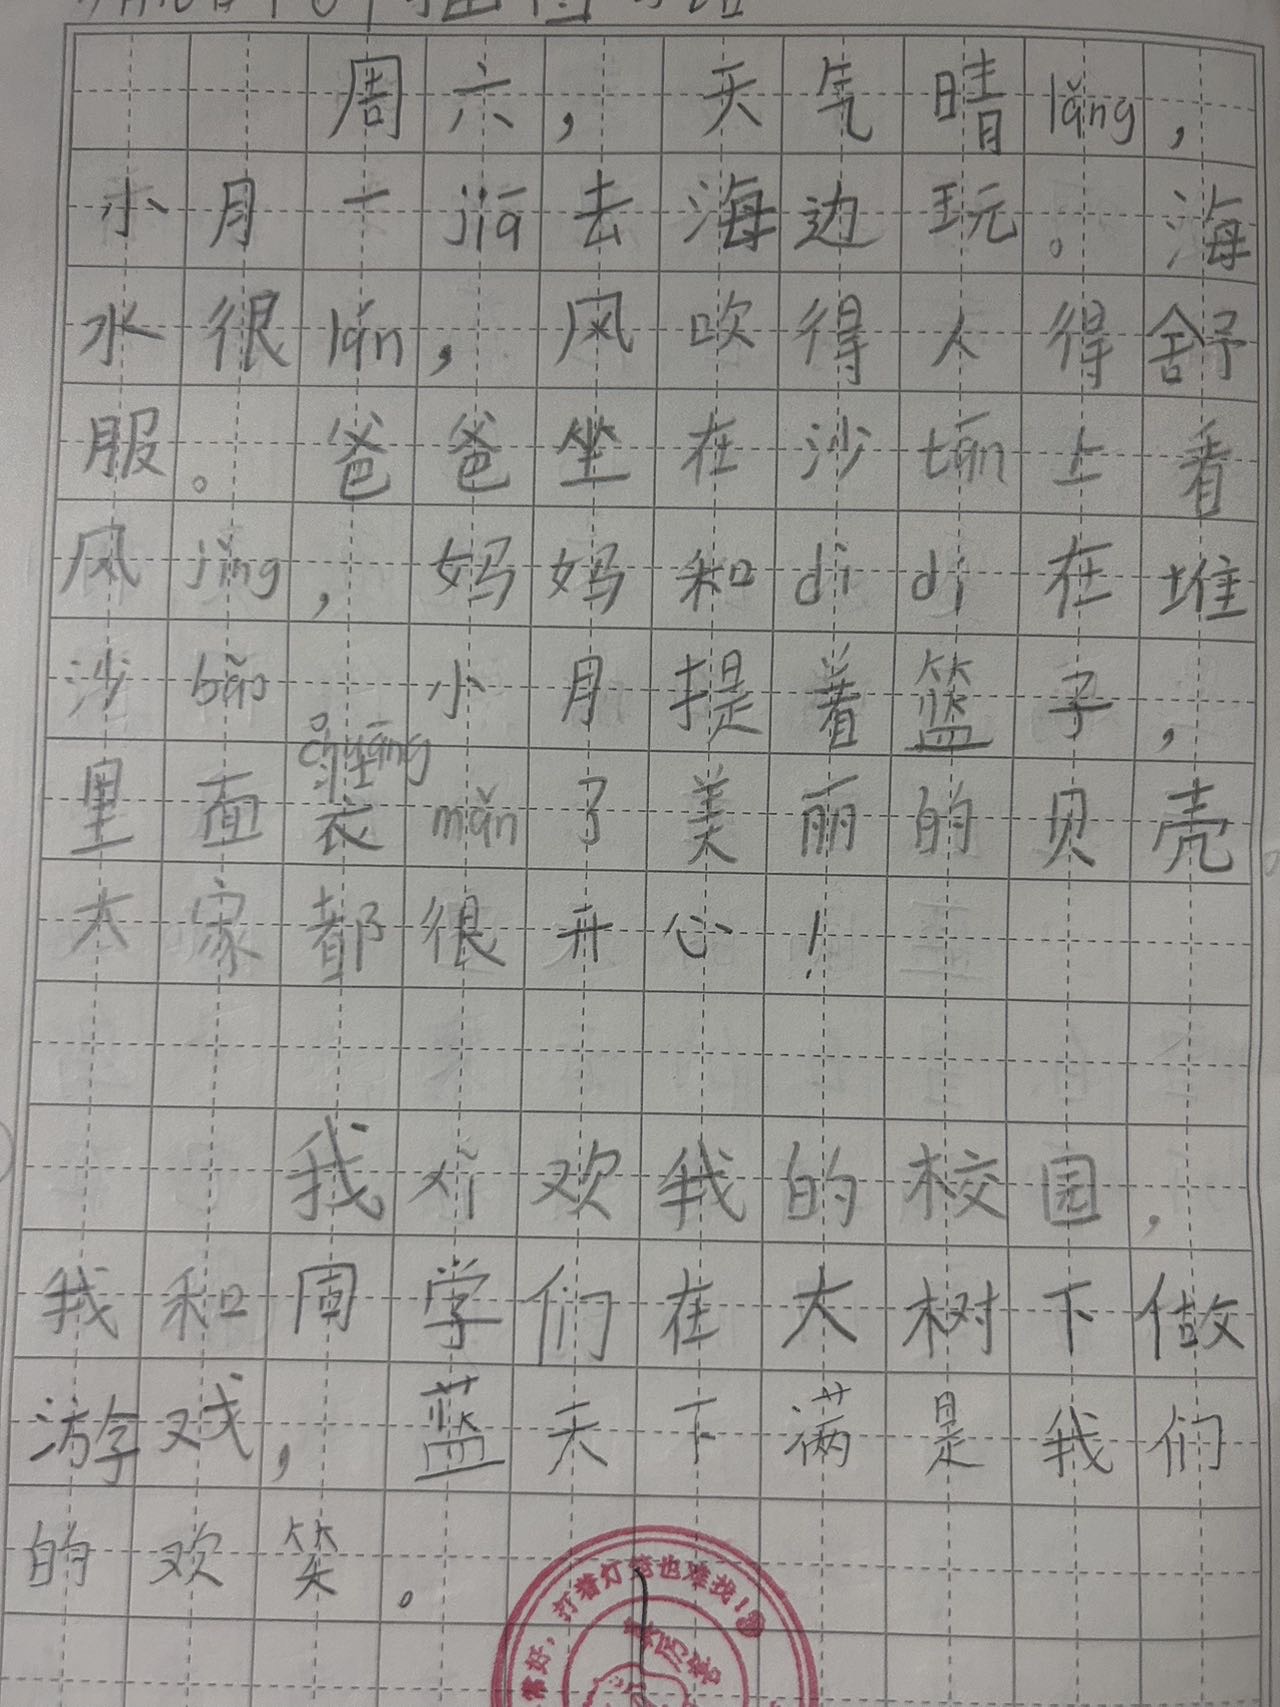 周六，天气晴lǎng，
小月一jiā去海边玩。海
水很lán，风吹得人得舒
服。爸爸坐在沙tān上看
风jǐng，妈妈和dì di在堆
沙bǎo。小月提着篮子，
里面装mǎn了美丽的贝壳
大家都很开心！
我欢我的校园，
我和同学们在大树下做
游戏，蓝天下满是我们
的欢笑。
常好，打着灯笼也难找！
真厉害